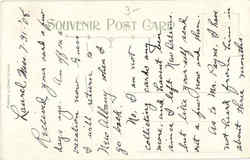 3-
SOUVENIR POST CARD
Laurel Miss 7/31/08
Received your card a few
days ago. Am off on a
vacation now. Guess
I will return to
New Albany when I
go back.
No, I am not
collecting cards any
more, and haven't been
since I left New Orleans
but like yourself send
out a few now and then.
As to Mr. Payne, I have
not heard from him in
about three months.